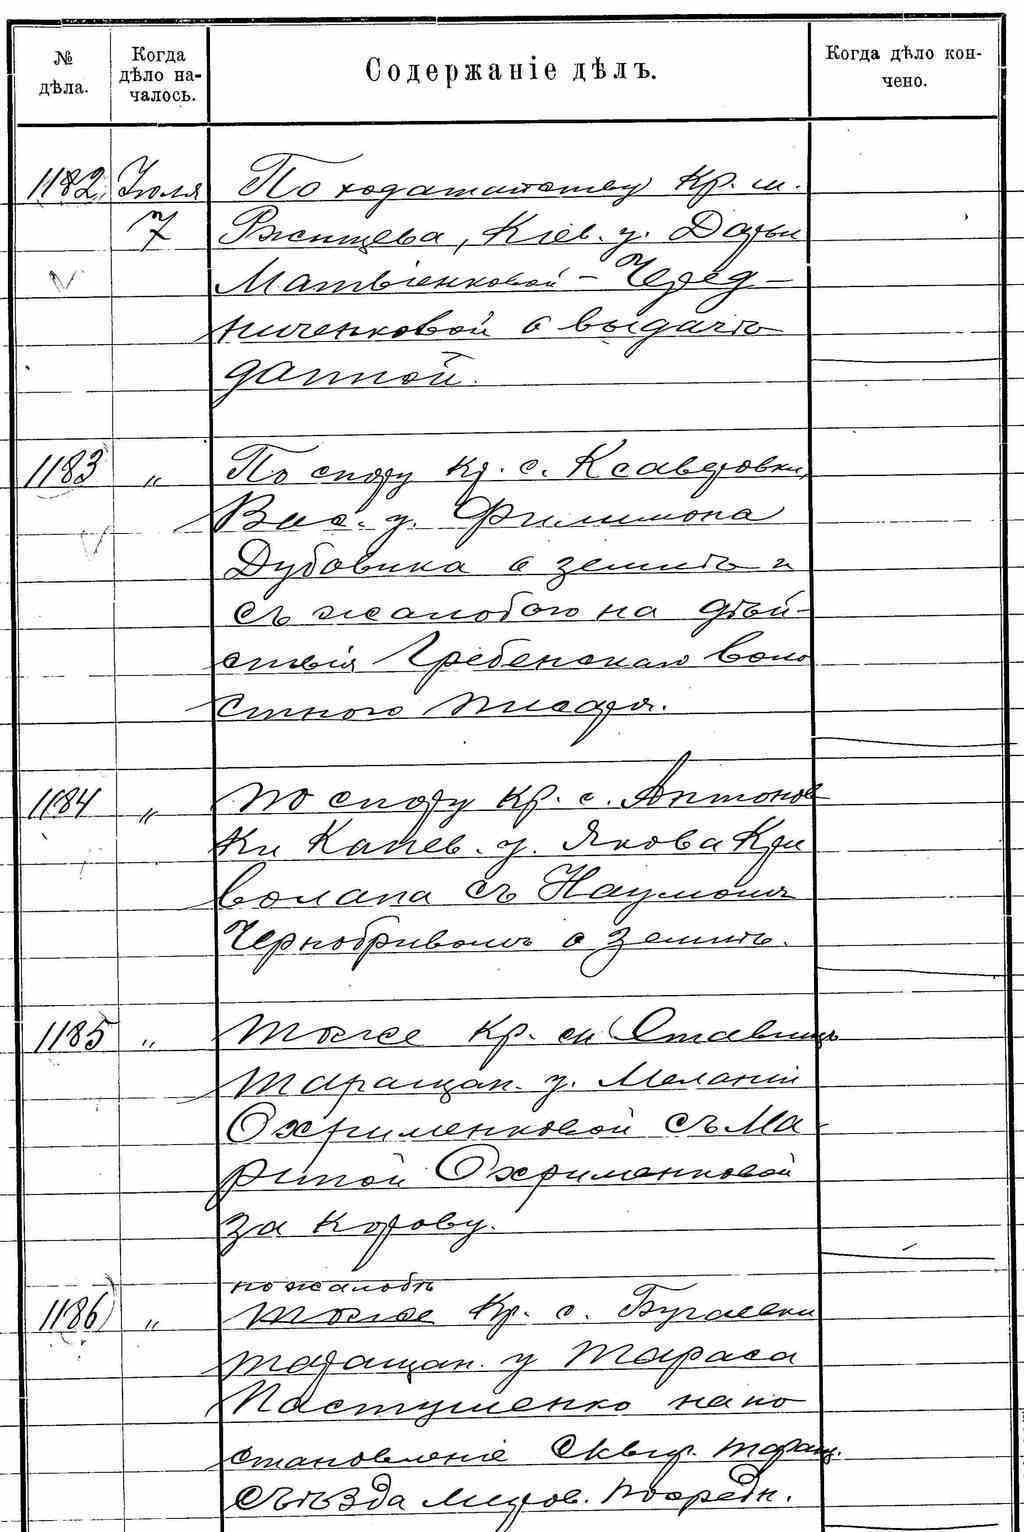 № дѣла.
Когда дѣло на-
чалось.
Содержаніе дѣлъ.
Когда дѣло кон-
чено.
1182. Іюля По ходатайству Кр. м.
7 Ржищева, Кіев. у. Дарьи
Матвіенковой - Черед-
ниченковой о выдачѣ
данной.
1183 " По спору кр. с. Ксаверовки,
Вас. у. Филимона
Дубовика о землѣ и
съ жалобою на дѣй-
ствія Гребенскаго воло
стного писаря.
1184 " По спору кр. с. Антонов
ки Канев. у. Якова Кри
волапа съ Наумомъ
Чернобривомъ о землѣ.
1185 " Тоже Кр. с. Ставищъ
Таращан. у. Меланіи
Охрименковой съ Ма-
риной Охрименковой
за корову.
по жалобѣ
1186 " Тоже Кр. с. Бугаевки
Таращан. у Тараса
Пастушенко на по
становленіе Сквир. Таращ.
Съѣзда Миров. Посредн.